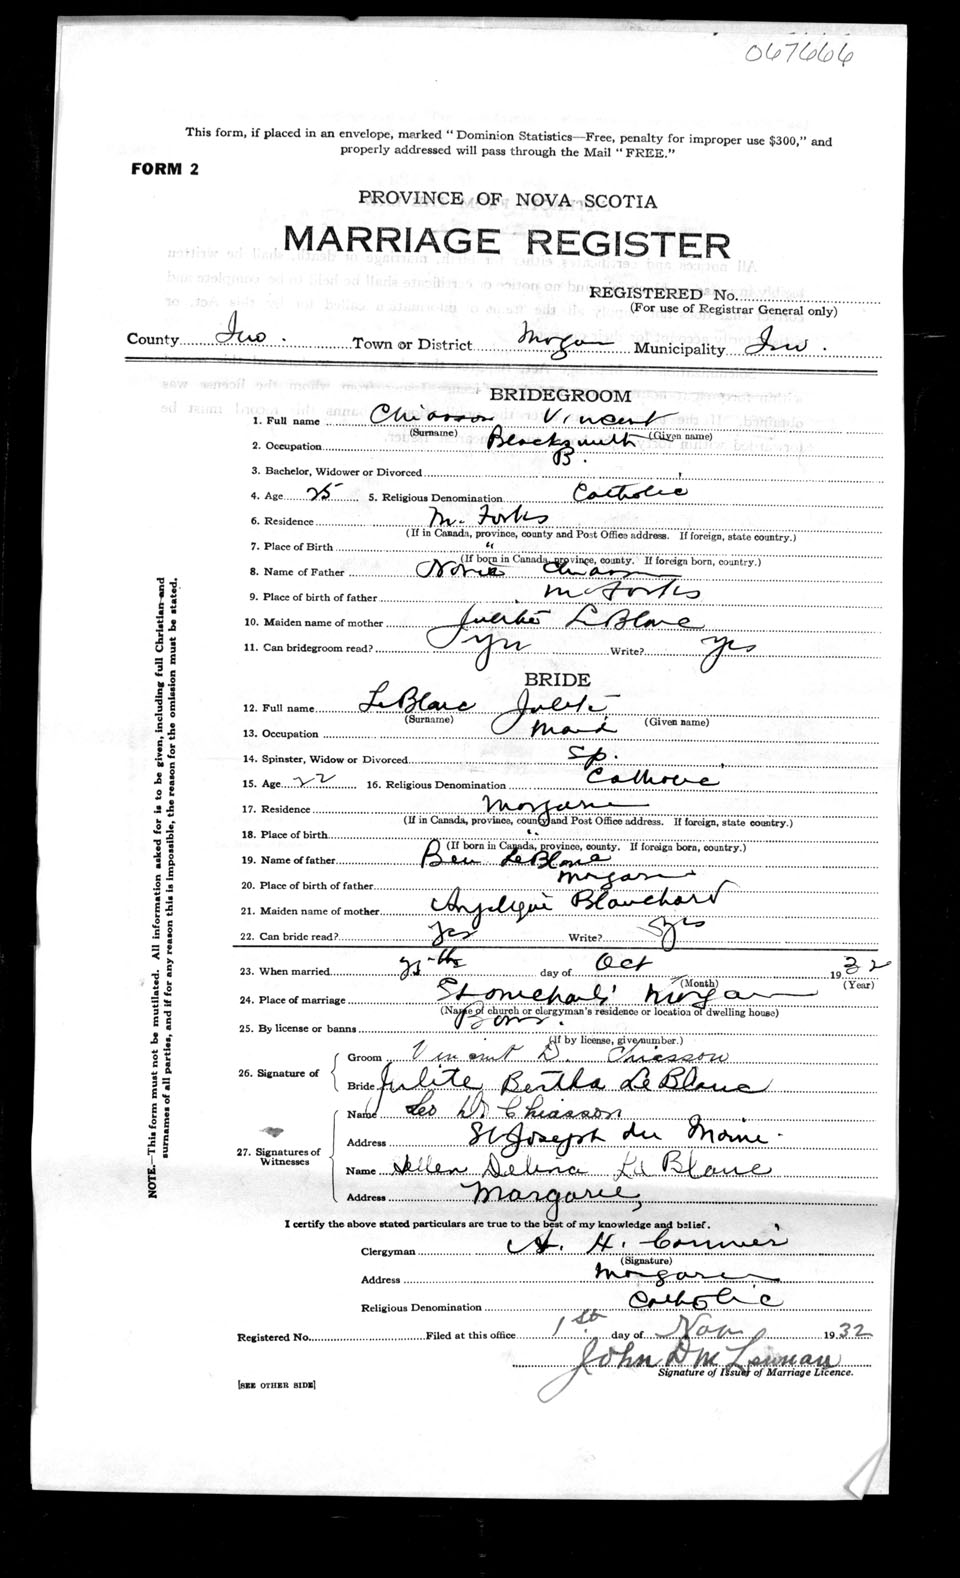 067666
This form, if placed in an envelope, marked "Dominion Statistics—Free, penalty for improper use $300," and
properly addressed will pass through the Mail "FREE."
FORM 2
PROVINCE OF NOVA SCOTIA
MARRIAGE REGISTER
REGISTERED No.
(For use of Registrar General only)
County Inv. Town or District Municipality Inv.
BRIDEGROOM
1. Full name Chiasson Vincent
(Surname) (Given name)
2. Occupation Blacksmith
3. Bachelor, Widower or Divorced B.
4. Age 25 5. Religious Denomination Catholic
6. Residence M. Forks
(If in Canada, province, county and Post Office address. If foreign, state country.)
7. Place of Birth "
(If born in Canada, province, county. If foreign born, country.)
8. Name of Father
9. Place of birth of father M Forks
10. Maiden name of mother LeBlanc
11. Can bridegroom read? Yes Write? Yes
BRIDE
12. Full name LeBlanc Julite
(Surname) (Given name)
13. Occupation Maid
14. Spinster, Widow or Divorced Sp.
15. Age 22 16. Religious Denomination Catholic
17. Residence Margaree
(If in Canada, province, county and Post Office address. If foreign, state country.)
18. Place of birth "
(If born in Canada, province, county. If foreign born, country.)
19. Name of father Ben LeBlanc
20. Place of birth of father
21. Maiden name of mother Angelique Blanchard
22. Can bride read? Yes Write? Yes
23. When married day of Oct 1932
(Month) (Year)
24. Place of marriage
(Name of church or clergyman's residence or location of dwelling house)
25. By license or banns
(If by license, give number.)
26. Signature of
Groom Vincent D. Chiasson
Bride Julite Bertha LeBlanc
27. Signatures of Witnesses
Name Leo Chiasson
Address St Joseph du Moine.
Name Hellen Delina Le Blanc
Address Margaree,
I certify the above stated particulars are true to the best of my knowledge and belief.
Clergyman A. H. Cormier
(Signature)
Address Margaree
Religious Denomination Catholic
Registered No. Filed at this office 1st day of Nov 1932
John D McLennan
Signature of Issuer of Marriage Licence.
[SEE OTHER SIDE]
NOTE.—This form must not be mutilated. All information asked for is to be given, including full Christian and
surnames of all parties, and if for any reason this is impossible, the reason for the omission must be stated.